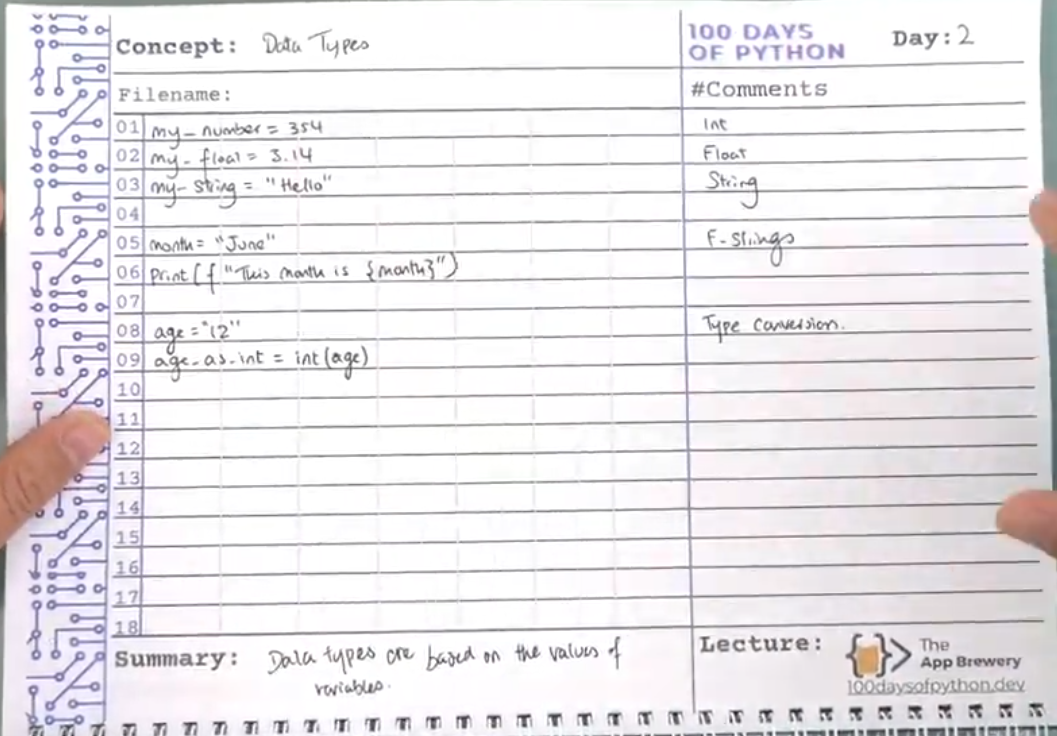 Concept: Data Types
100 DAYS
OF PYTHON
Day: 2
Filename:
#Comments
01 my_number = 354 Int
02 my_float = 3.14 Float
03 my_string = "Hello" String
04
05 month = "June" F-strings
06 print(f "This month is {month}")
07
08 age = "12" Type conversion.
09 age_as_int = int(age)
10
11
12
13
14
15
16
17
18
Summary: Data types are based on the values of
variables.
Lecture:
The
App Brewery
100daysofpython.dev